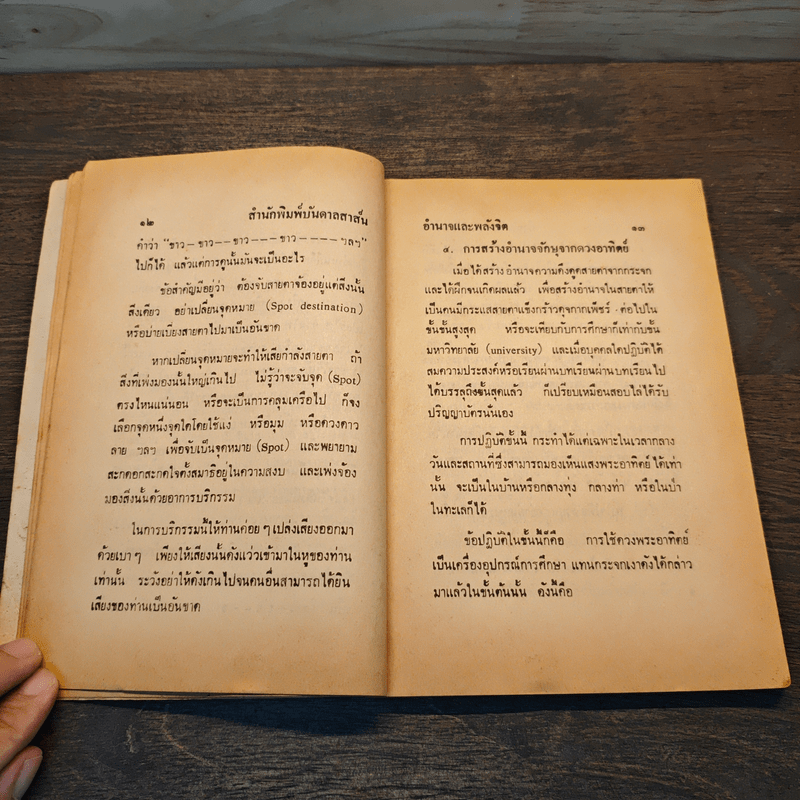 ๑๒ สำนักพิมพ์บันดาลสาส์น
คำว่า "ขาว – ขาว –– ขาว ––– ขาว –––– ฯลฯ"
ไปก็ได้ แล้วแต่การดูนั้นมันจะเป็นอะไร
ข้อสำคัญมีอยู่ว่า ต้องจับสายตาจ้องอยู่แต่สิ่งนั้น
สิ่งเดียว อย่าเปลี่ยนจุดหมาย (Spot destination)
หรือบ่ายเบี่ยงสายตาไปมาเป็นอันขาด
หากเปลี่ยนจุดหมายจะทำให้เสียกำลังสายตา ถ้า
สิ่งที่เพ่งมองนั้นใหญ่เกินไป ไม่รู้ว่าจะจับจุด (Spot)
ตรงไหนแน่นอน หรือจะเป็นการคลุมเครือไป ก็จง
เลือกจุดหนึ่งจุดใดโดยใช้แง่ หรือมุม หรือดวงดาว
ลาย ฯลฯ เพื่อจับเป็นจุดหมาย (Spot) และพยายาม
สะกดอกสะกดใจตั้งสมาธิอยู่ในความสงบ และเพ่งจ้อง
มองสิ่งนั้นด้วยอาการบริกรรม
ในการบริกรรมนี้ให้ท่านค่อย ๆ เปล่งเสียงออกมา
ด้วยเบา ๆ เพียงให้เสียงนั้นดังแว่วเข้ามาในหูของท่าน
เท่านั้น ระวังอย่าให้ดังเกินไปจนคนอื่นสามารถได้ยิน
เสียงของท่านเป็นอันขาด
อำนาจและพลังจิต ๑๓
๔. การสร้างอำนาจจักษุจากดวงอาทิตย์
เมื่อได้สร้างอำนาจความดึงดูดสายตาจากกระจก
และได้ฝึกจนเกิดผลแล้ว เพื่อสร้างอำนาจในสายตาให้
เป็นคนมีกระแสสายตาแข็งกร้าวดุจกากเพ็ชร์ ต่อไปใน
ขั้นชั้นสูงสุด หรือจะเทียบกับการศึกษาก็เท่ากับชั้น
มหาวิทยาลัย (university) และเมื่อบุคคลใดปฏิบัติได้
สมความประสงค์หรือเรียนผ่านบทเรียนผ่านบทเรียนไป
ได้บรรลุถึงชั้นสุดแล้ว ก็เปรียบเหมือนสอบไล่ได้รับ
ปริญญาบัตรนั่นเอง
การปฏิบัติชั้นนี้ กระทำได้แต่เฉพาะในเวลากลาง
วันและสถานที่ซึ่งสามารถมองเห็นแสงพระอาทิตย์ได้เท่า
นั้น จะเป็นในบ้านหรือกลางทุ่ง กลางท่า หรือในป่า
ในทะเลก็ได้
ข้อปฏิบัติในชั้นนี้ก็คือ การใช้ดวงพระอาทิตย์
เป็นเครื่องอุปกรณ์การศึกษา แทนกระจกเงาดังได้กล่าว
มาแล้วในขั้นต้นนั้น ดังนี้คือ